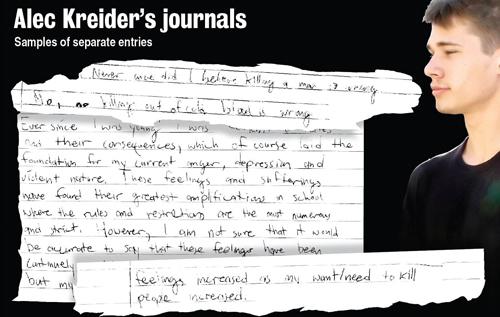 Alec Kreider's journals
Samples of separate entries
Never once did I believe killing a man is
No, no killing out of cold blood is wrong
Ever since I was young I was
and their consequences, which of course laid the
foundation for my current anger, depression and
violent nature. These feelings and sufferings
have found their greatest amplifications in school
where the rules and restrictions are the most numerous
and strict. However, I am not sure that it would
be accurate to say that these feelings have been
but my
feelings increased as my want/need to kill
people increased.